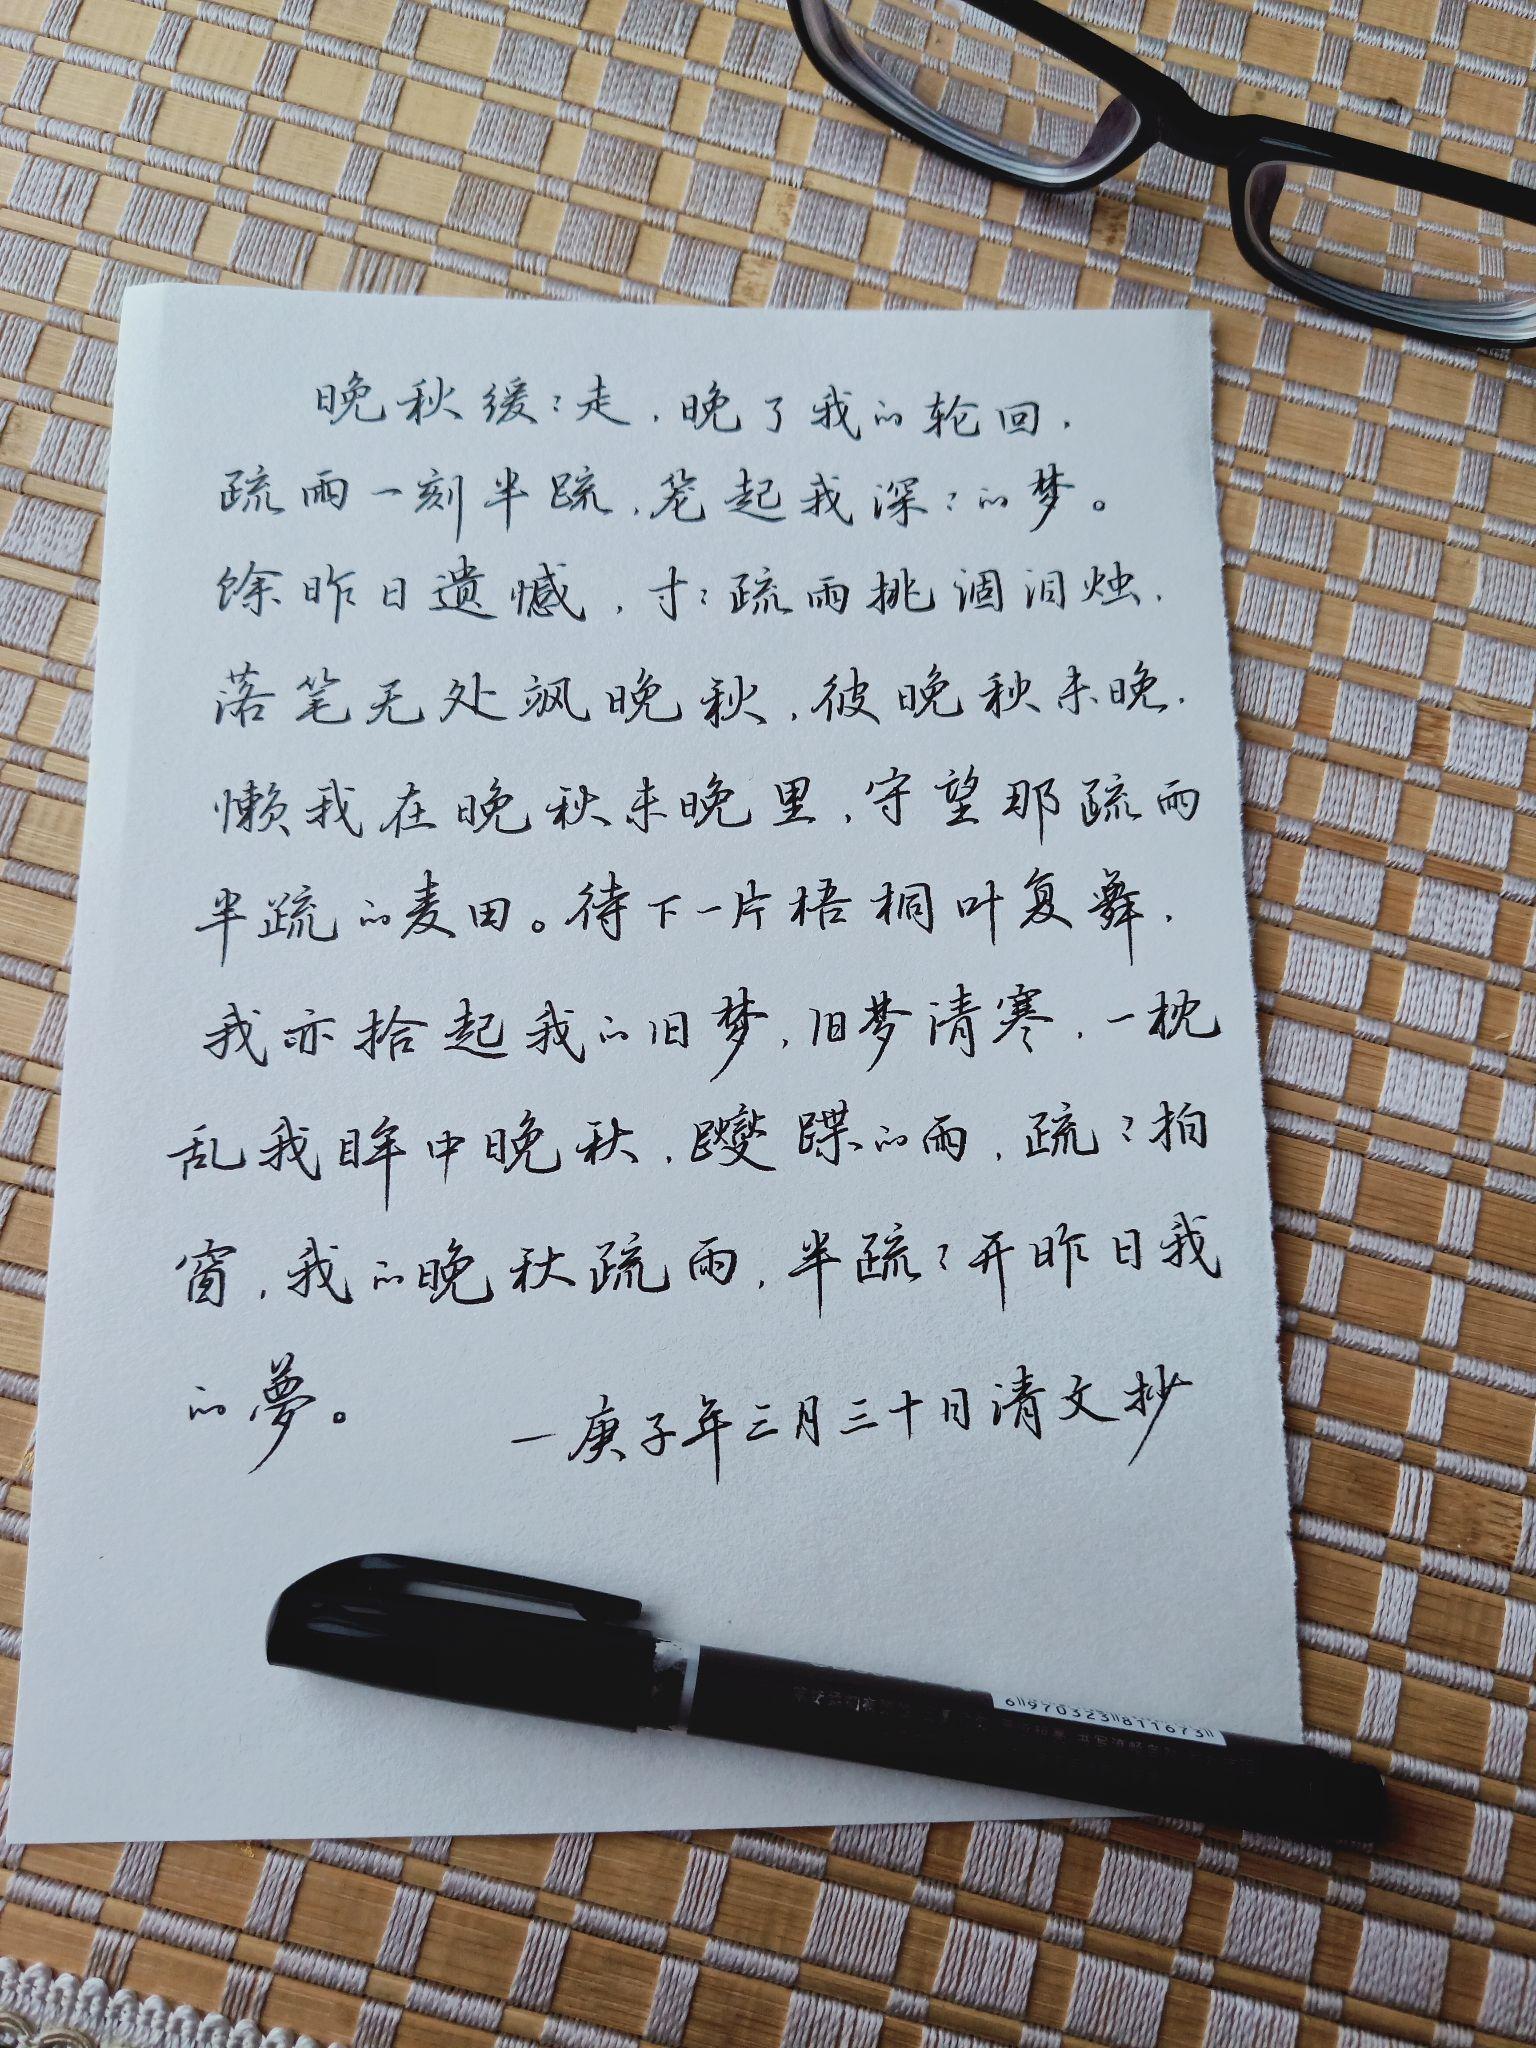 晚秋缓〻走，晚了我的轮回，
疏雨一刻半疏，笼起我深〻的梦。
馀昨日遗憾，寸〻疏雨挑涸泪烛，
落笔无处飒晚秋，彼晚秋未晚，
懒我在晚秋未晚里，守望那疏雨
半疏的麦田。待下一片梧桐叶复舞，
我亦拾起我的旧梦，旧梦清寒，一枕
乱我眸中晚秋，躞蹀的雨，疏〻拍
窗，我的晚秋疏雨，半疏〻开昨日我
的夢。
—庚子年三月三十日清文抄
6 970323 811673